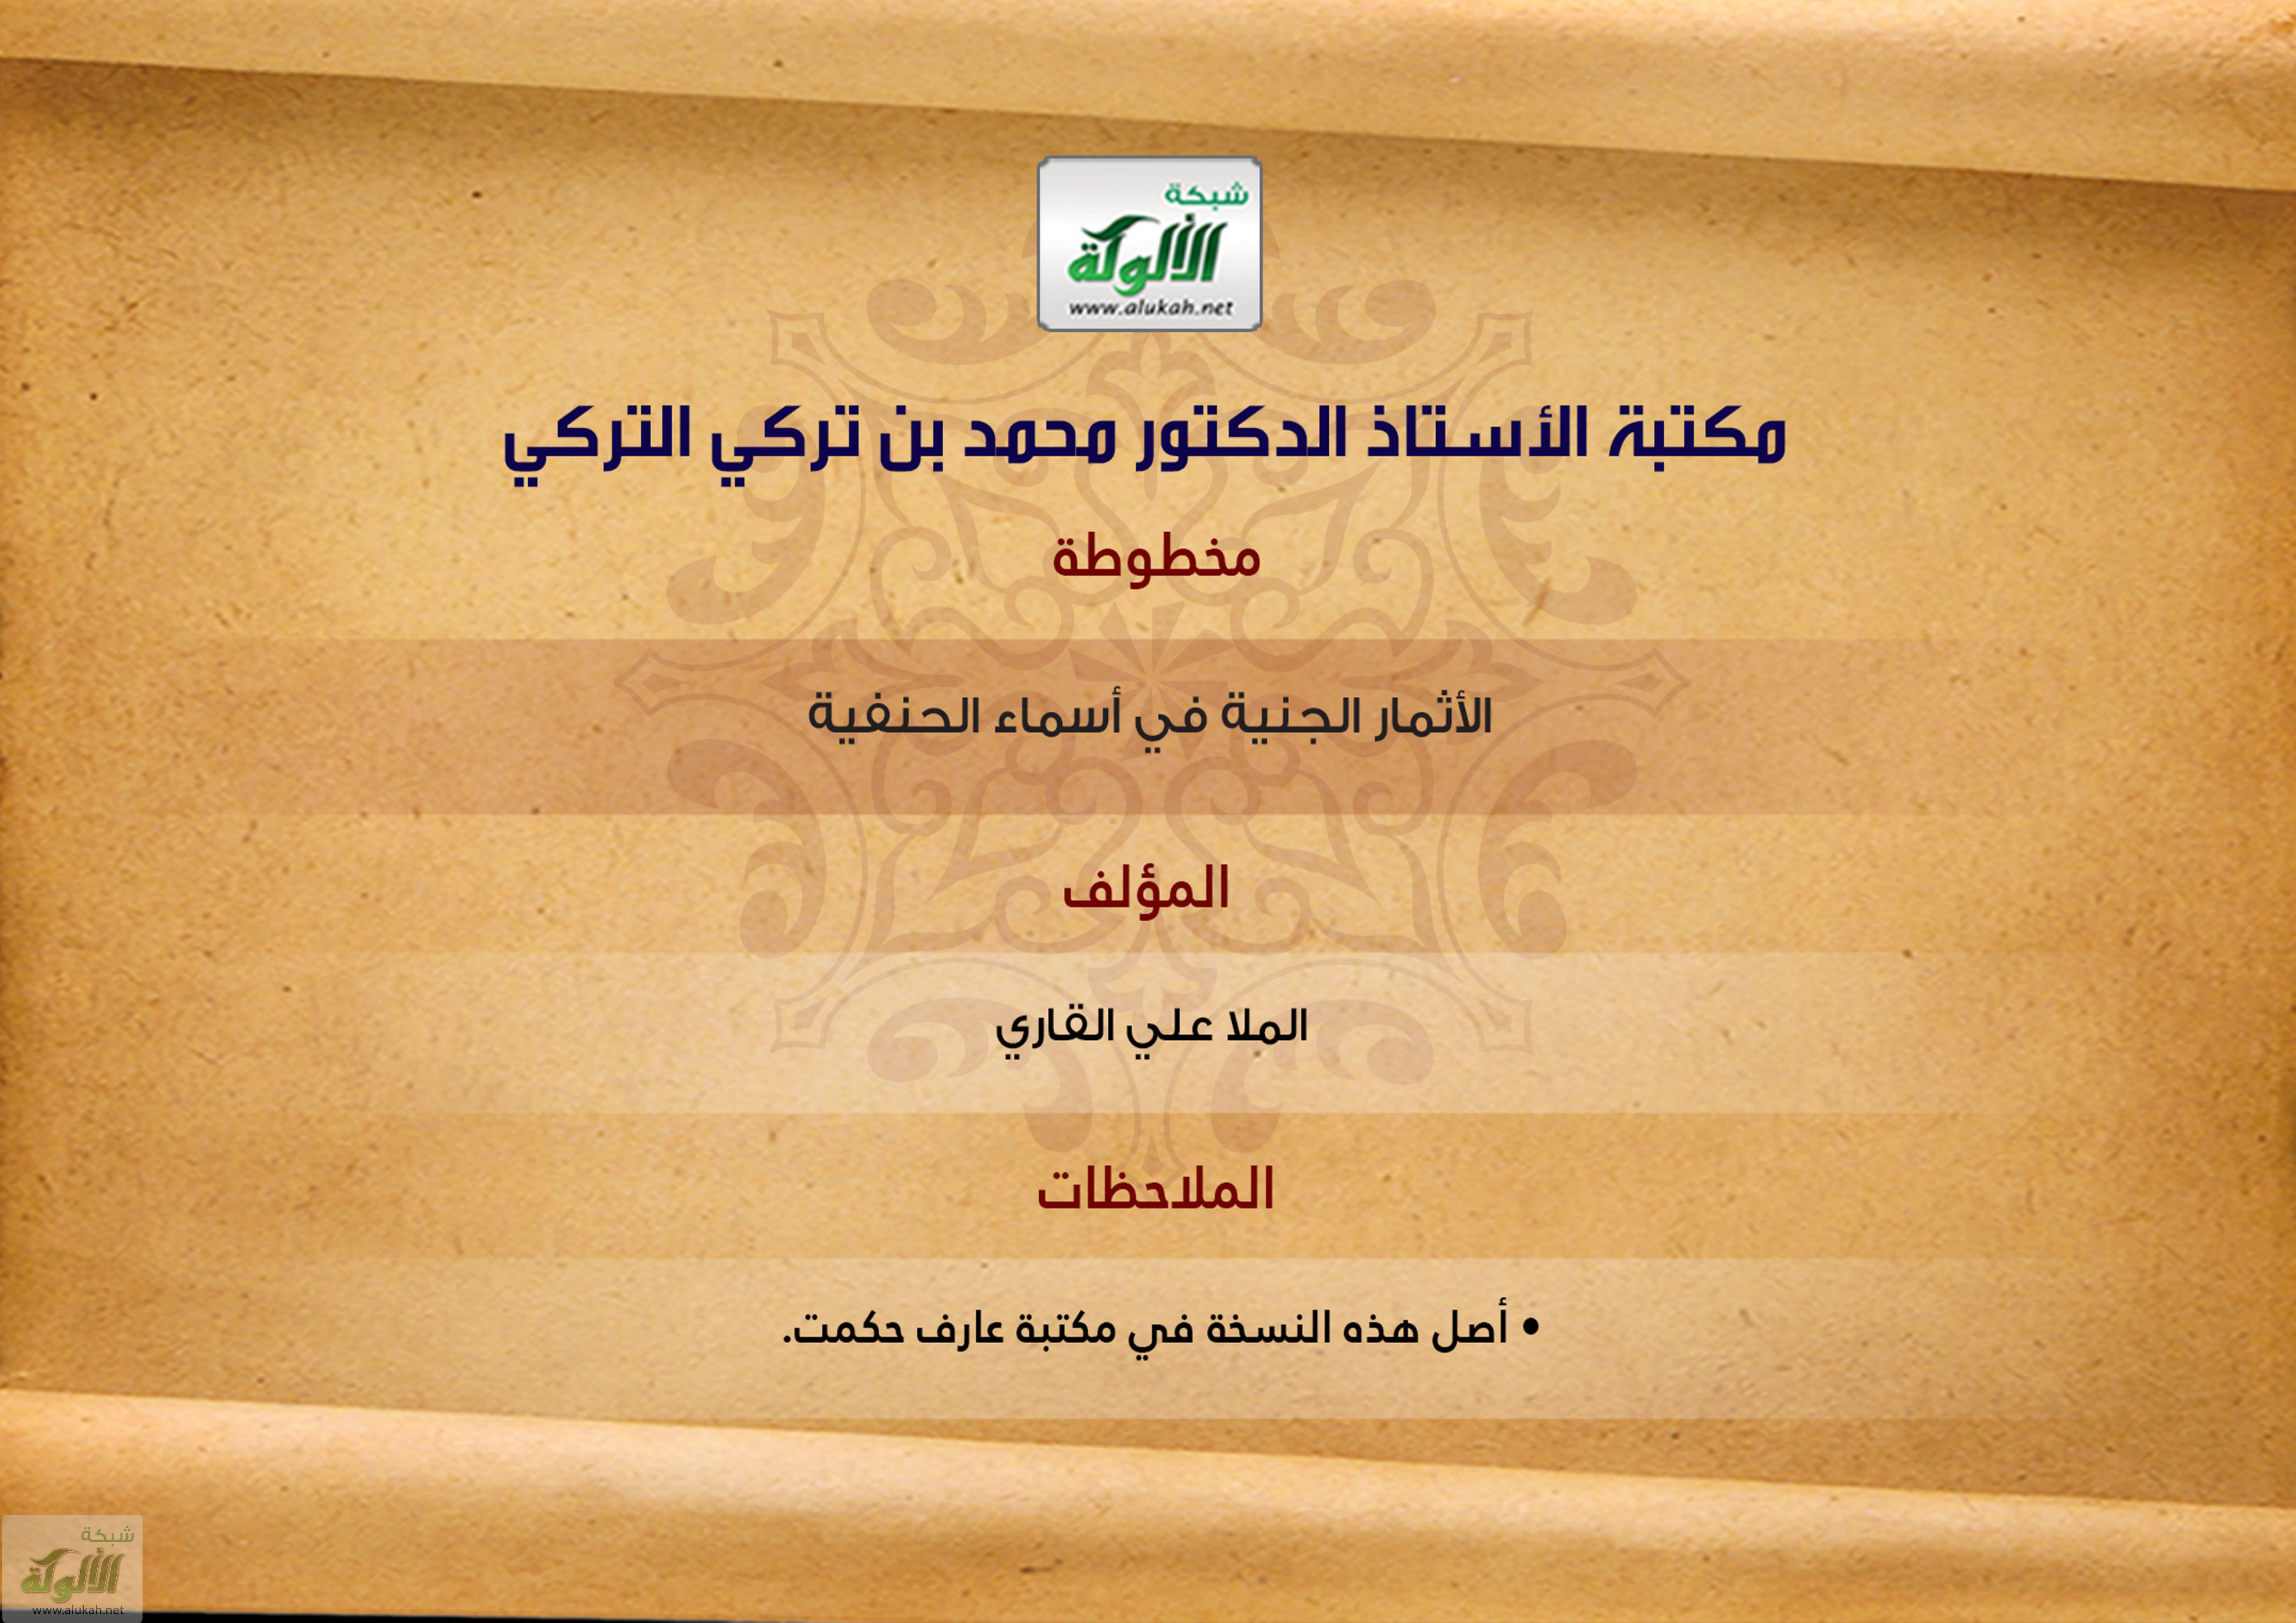 شبكة
الألوكة
www.alukah.net
مكتبة الأستاذ الدكتور محمد بن تركي التركي
مخطوطة
الأثمار الجنية في أسماء الحنفية
المؤلف
الملا علي القاري
الملاحظات
• أصل هذه النسخة في مكتبة عارف حكمت.
شبكة
الألوكة
www.alukah.net